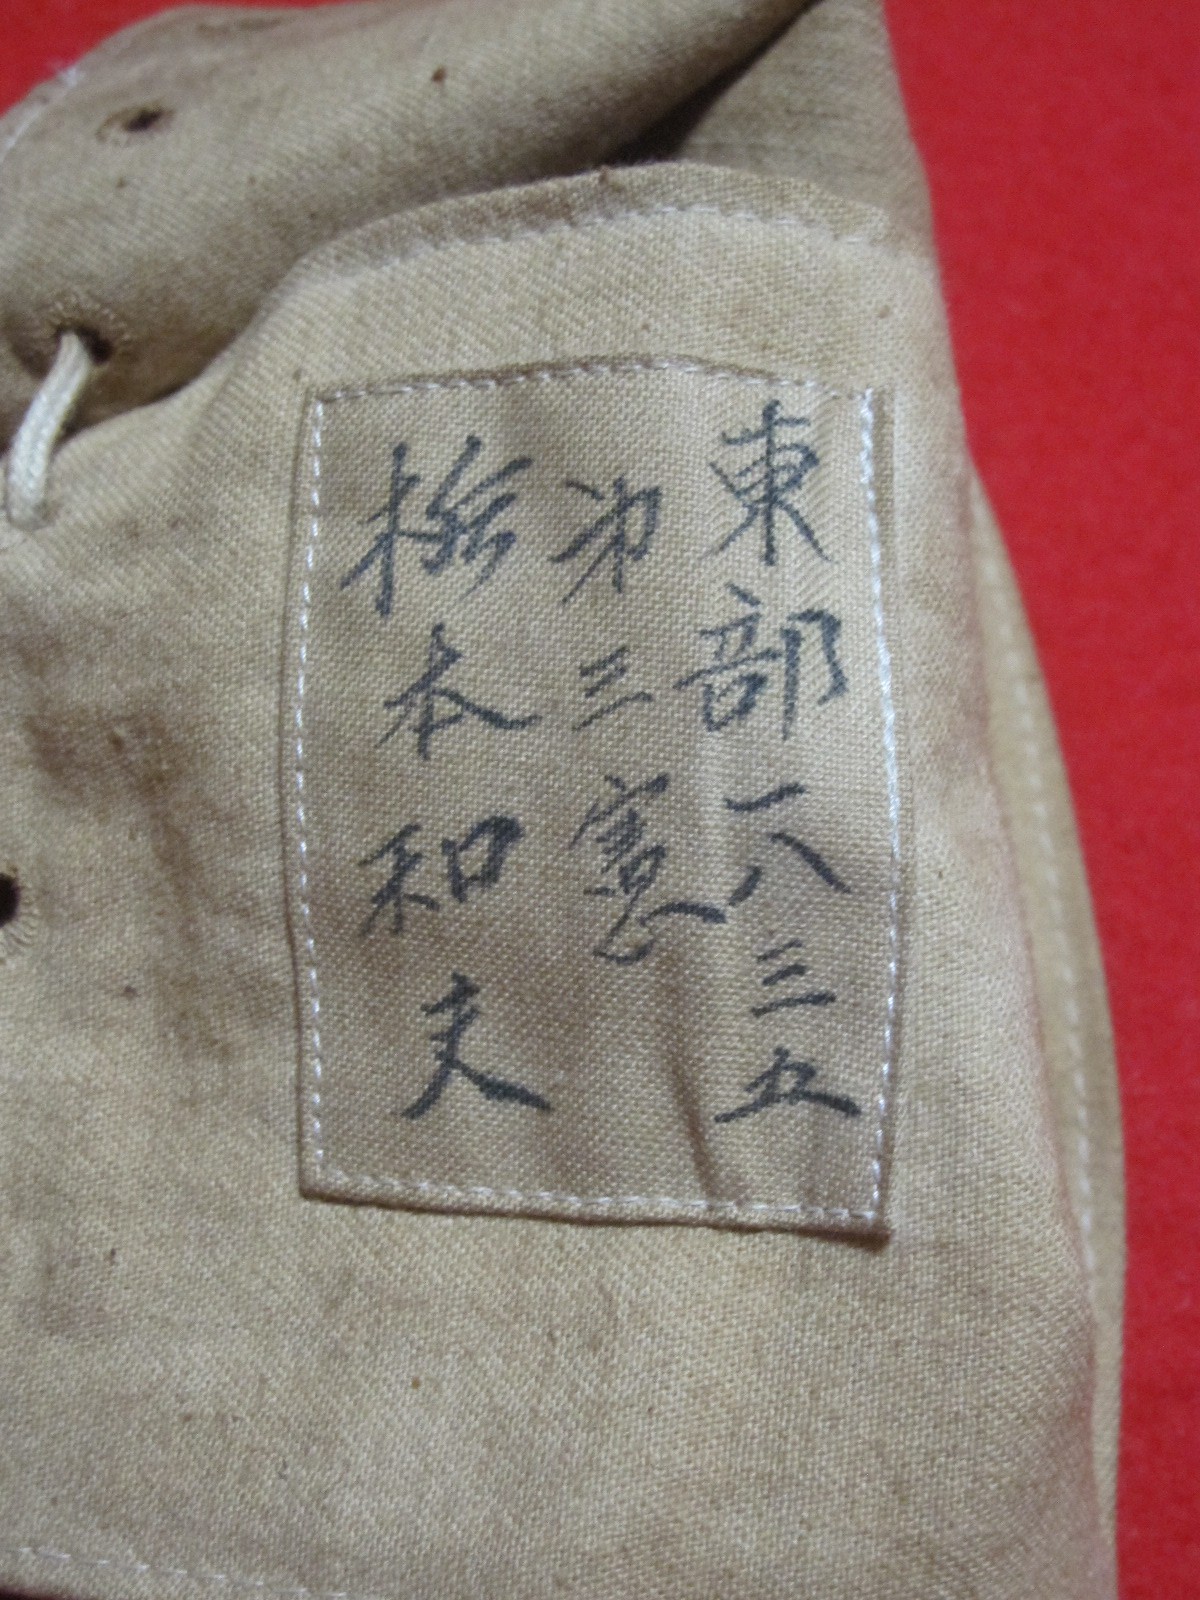 東部一八三五
第三憲
本和夫